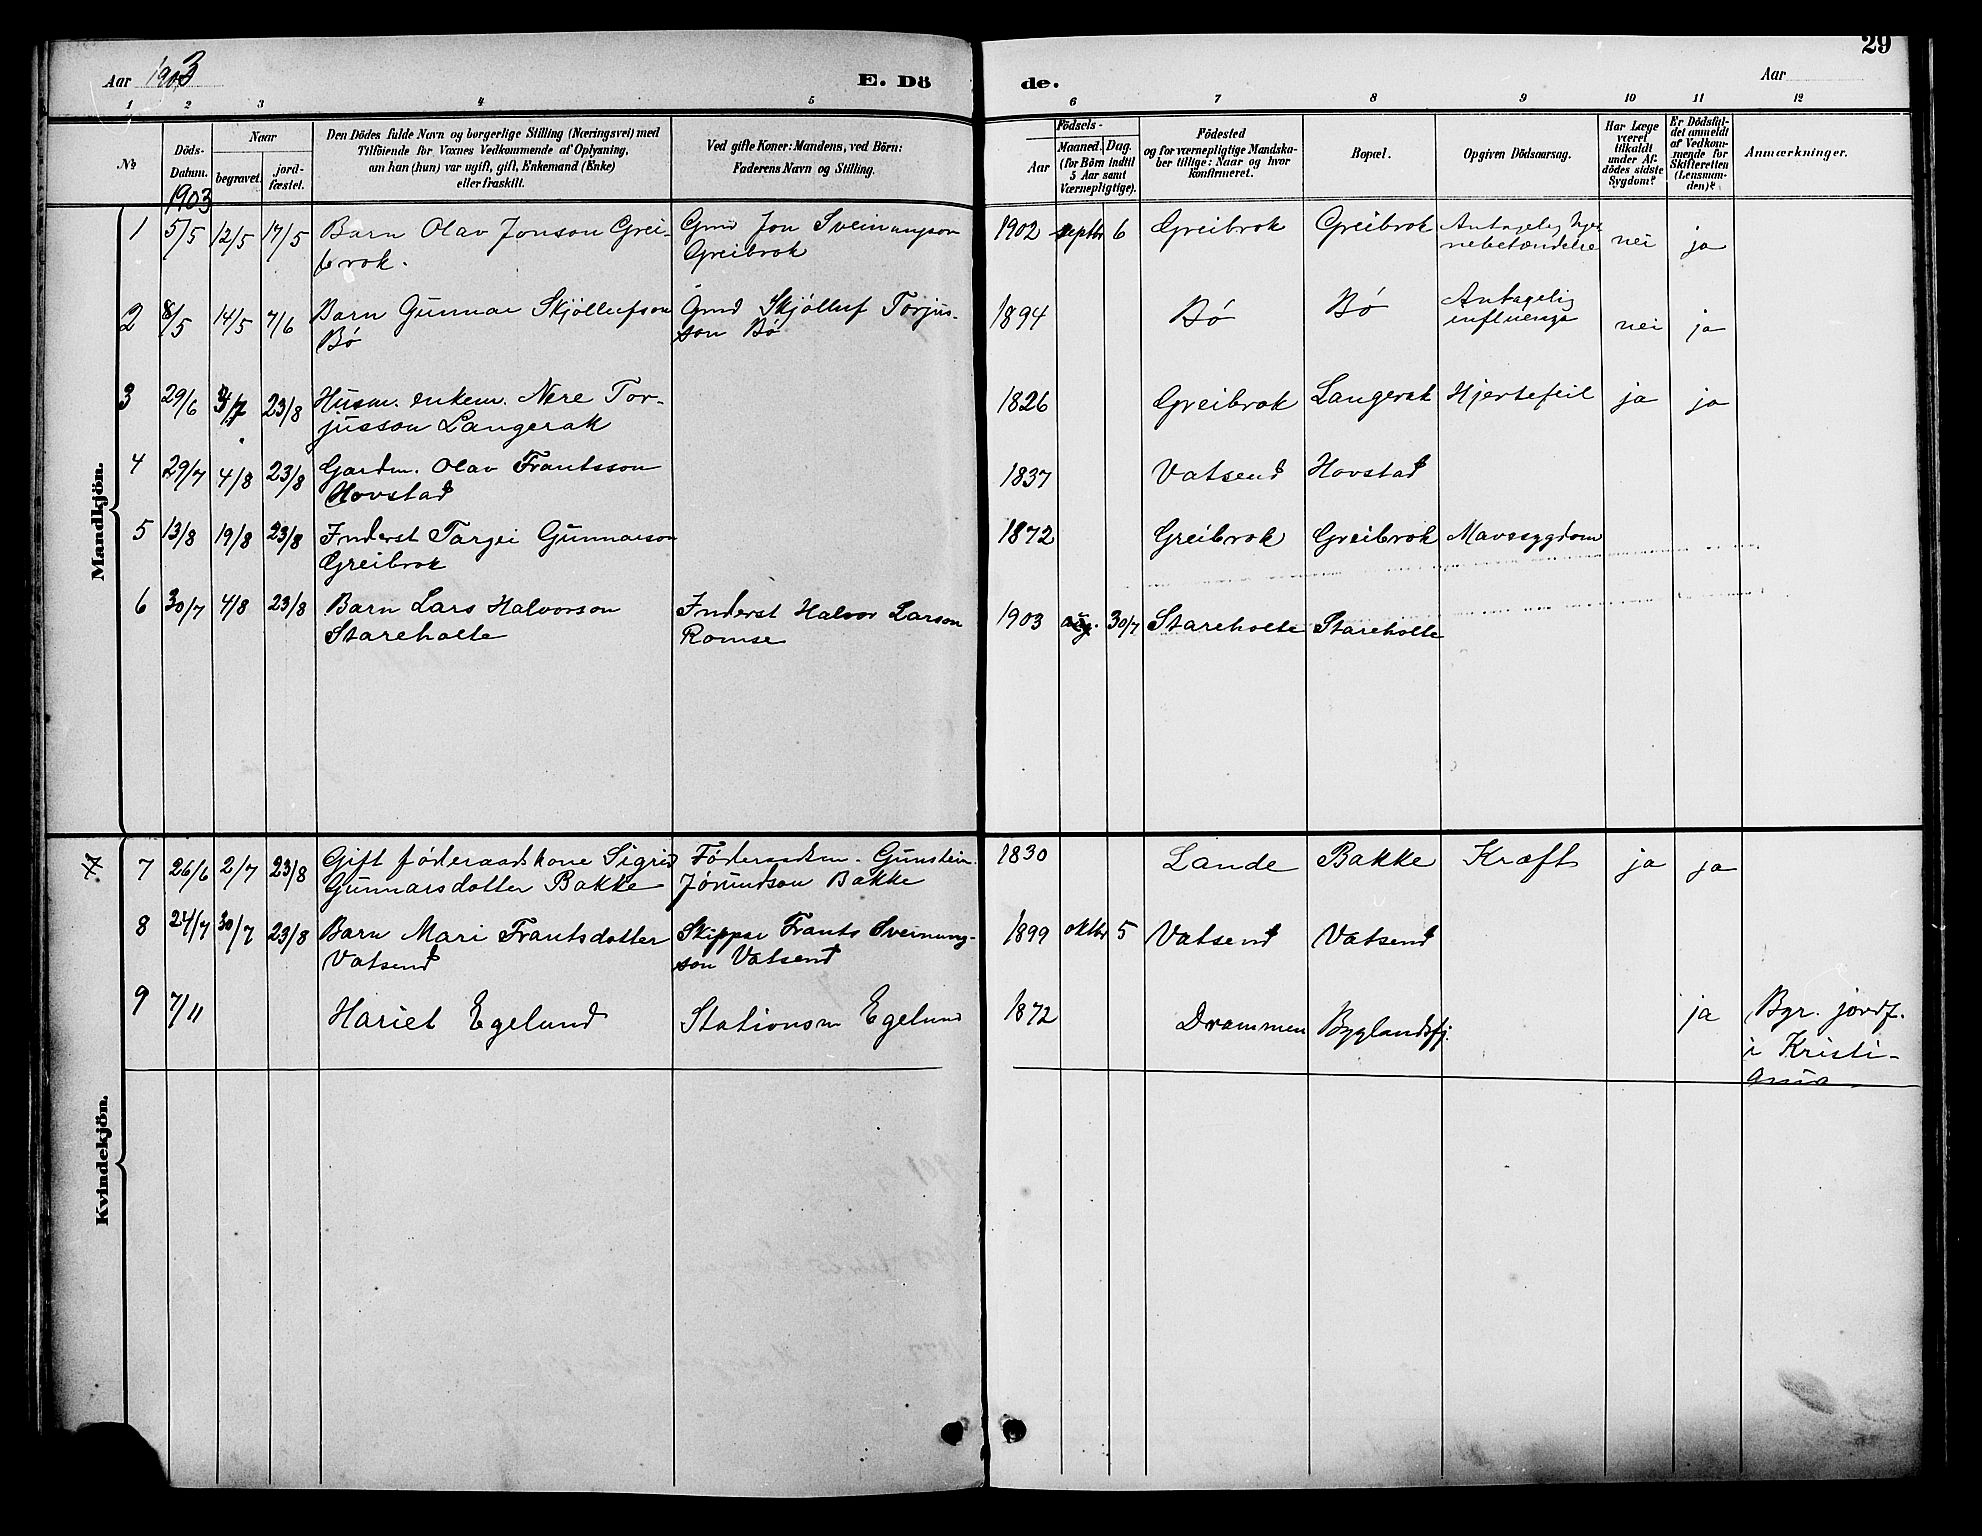 29
Aar 1903 E. Dö de. Aar
1 2 3 4 5 6 7 8 9 10 11 12
No
Döds-Datum.
Naar
begravet.
jord-fæstet.
Den Dödes fulde Navn og borgerlige Stilling (Næringsvei) med
Tilföiende for Voxnes Vedkommende af Oplysning,
om han (hun) var ugift, gift, Enkemand (Enke)
eller fraskilt.
Ved gifte Koner: Mandens, ved Börn:
Faderens Navn og Stilling.
Födsels-
Aar
Maaned. Dag.
(for Börn indtil
5 Aar samt
Værnepligtige).
Födested
og for værnepligtige Mandska-
ber tillige: Naar og hvor
konfirmeret.
Bopæl.
Opgiven Dödsaarsag.
Har Læge
været
tilkaldt
under Af-
dödes sidste
Sygdom?
Er Dödsfal-
det anmeldt
af Vedkom-
mende for
Skifteretten
(Lensman-
den)?
Anmærkninger.
Mandkjön.
1903
1 5/5 12/5 17/5 Barn Olav Jonson Grei- Gmd Jon Sveinungson 1902 septbr 6 Greibrok Greibrok Antagelig hjer-
brok. Greibrok nebetændelse nei ja
2 8/5 14/5 7/6 Barn Gunnar Skjöllufson Gmd Skjölluf Torjus- 1894 Bø Bø Antagelig
Bø son Bø influenza nei ja
3 29/6 4/7 23/8 Husm. enkem. Nere Tor- 1826 Greibrok Langerak Hjertefeil ja ja
jusson Langerak
4 29/7 4/8 23/8 Gardm. Olav Frantsson 1837 Vatsend Hovstad
Hovstad
5 13/8 19/8 23/8 Inderst Targei Gunnarson 1872 Greibrok Greibrok Mavesygdom
Greibrok
6 30/7 4/8 23/8 Barn Lars Halvorson Inderst Halvor Larson 1903 aug. 30/7 Stareholte Stareholte
Stareholte Romse
Kvindekjön.
7 26/6 2/7 23/8 Gift föderaadskone Sigrid Föderaadsm. Gunstein 1830 Lande Bakke Kræft ja ja
Gunnarsdotter Bakke Jörundson Bakke
8 24/7 30/7 23/8 Barn Mari Frantsdotter Skipper Frants Sveinung- 1899 oktbr 5 Vatsend Vatsend
Vatsend son Vatsend
9 7/11 Hariet Egelund Stationsm Egelund 1872 Drammen Byglandsfj. ja Bgr. jordf.
i Kristi-
ania